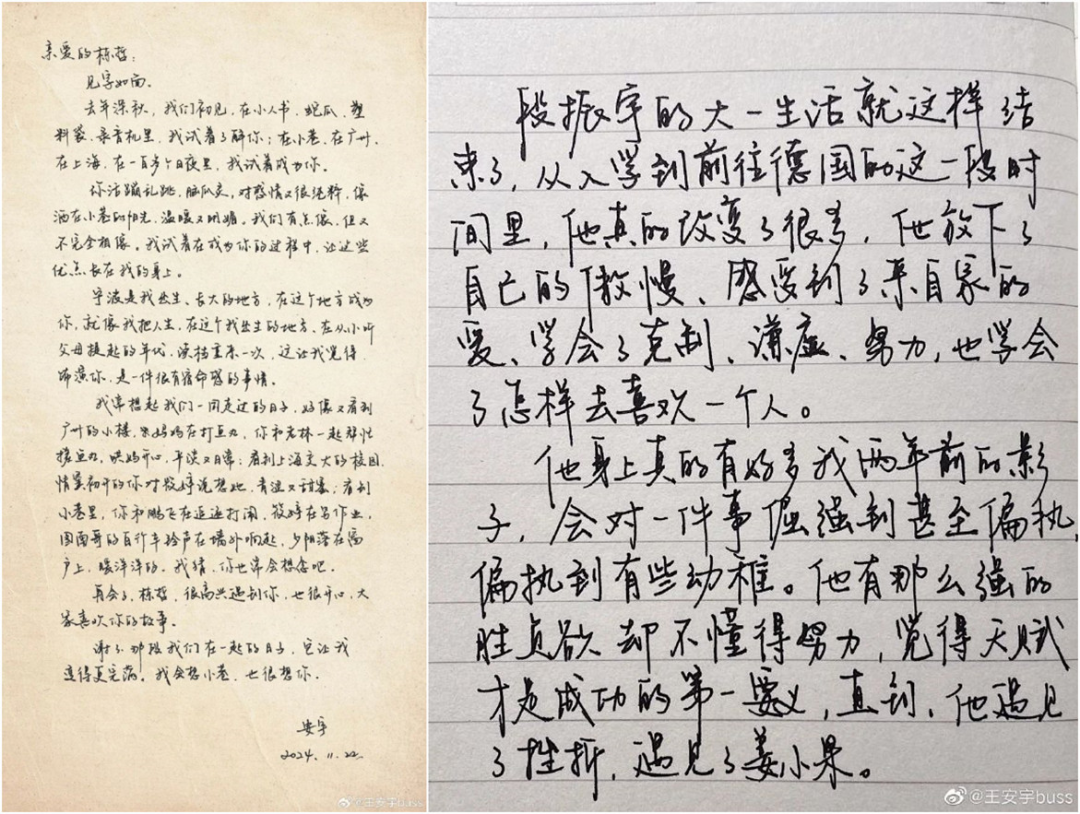 亲爱的栋哲：
见字如面。
去年深秋，我们初见，在小人书、蛇瓜、塑
料袋、录音机里，我试着了解你；在小巷，在广州，
在上海，在一百多个日夜里，我试着成为你。
你活蹦乱跳，脑瓜灵，对感情又很纯粹，像
洒在小巷的阳光，温暖又明媚。我们有点像，但又
不完全相像。我试着在成为你的过程中，让这些
优点长在我的身上。
宁波是我出生、长大的地方，在这个地方成为
你，就像我把人生，在这个我出生的地方，在从小听
父母提起的年代，读档重来一次，这让我觉得
饰演你，是一件很有宿命感的事情。
我常想起我们一同走过的日子，好像又看到
广州的小楼，宋妈妈在打鱼丸，你和老林一起帮忙
搓鱼丸，哄妈开心，平淡又日常；看到上海交大的校园，
情窦初开的你对筱婷说想她，青涩又甜蜜；看到
小巷里，你和鹏飞在追逐打闹，筱婷在写作业，
图南哥的自行车铃声在墙外响起，夕阳落在窗
户上，暖洋洋的。我猜，你也常会想念吧。
再会了，栋哲，很高兴遇到你，也很开心，大
家喜欢你的故事。
谢谢那段我们在一起的日子，它让我
变得更完满。我会想小巷，也很想你。
安宇
2024.11.22
@王安宇buss
段振宇的大一生活就这样结
束了，从入学到前往德国的这一段时
间里，他真的改变了很多，他放下了
自己的傲慢、感受到了来自家的
爱、学会了克制、谦虚、努力，也学会
了怎样去喜欢一个人。
他身上真的有好多我两年前的影
子，会对一件事倔强到甚至偏执，
偏执到有些幼稚。他有那么强的
胜负欲却不懂得努力，觉得天赋
才是成功的第一要义，直到，他遇见
了挫折，遇见了姜小果。
@王安宇buss